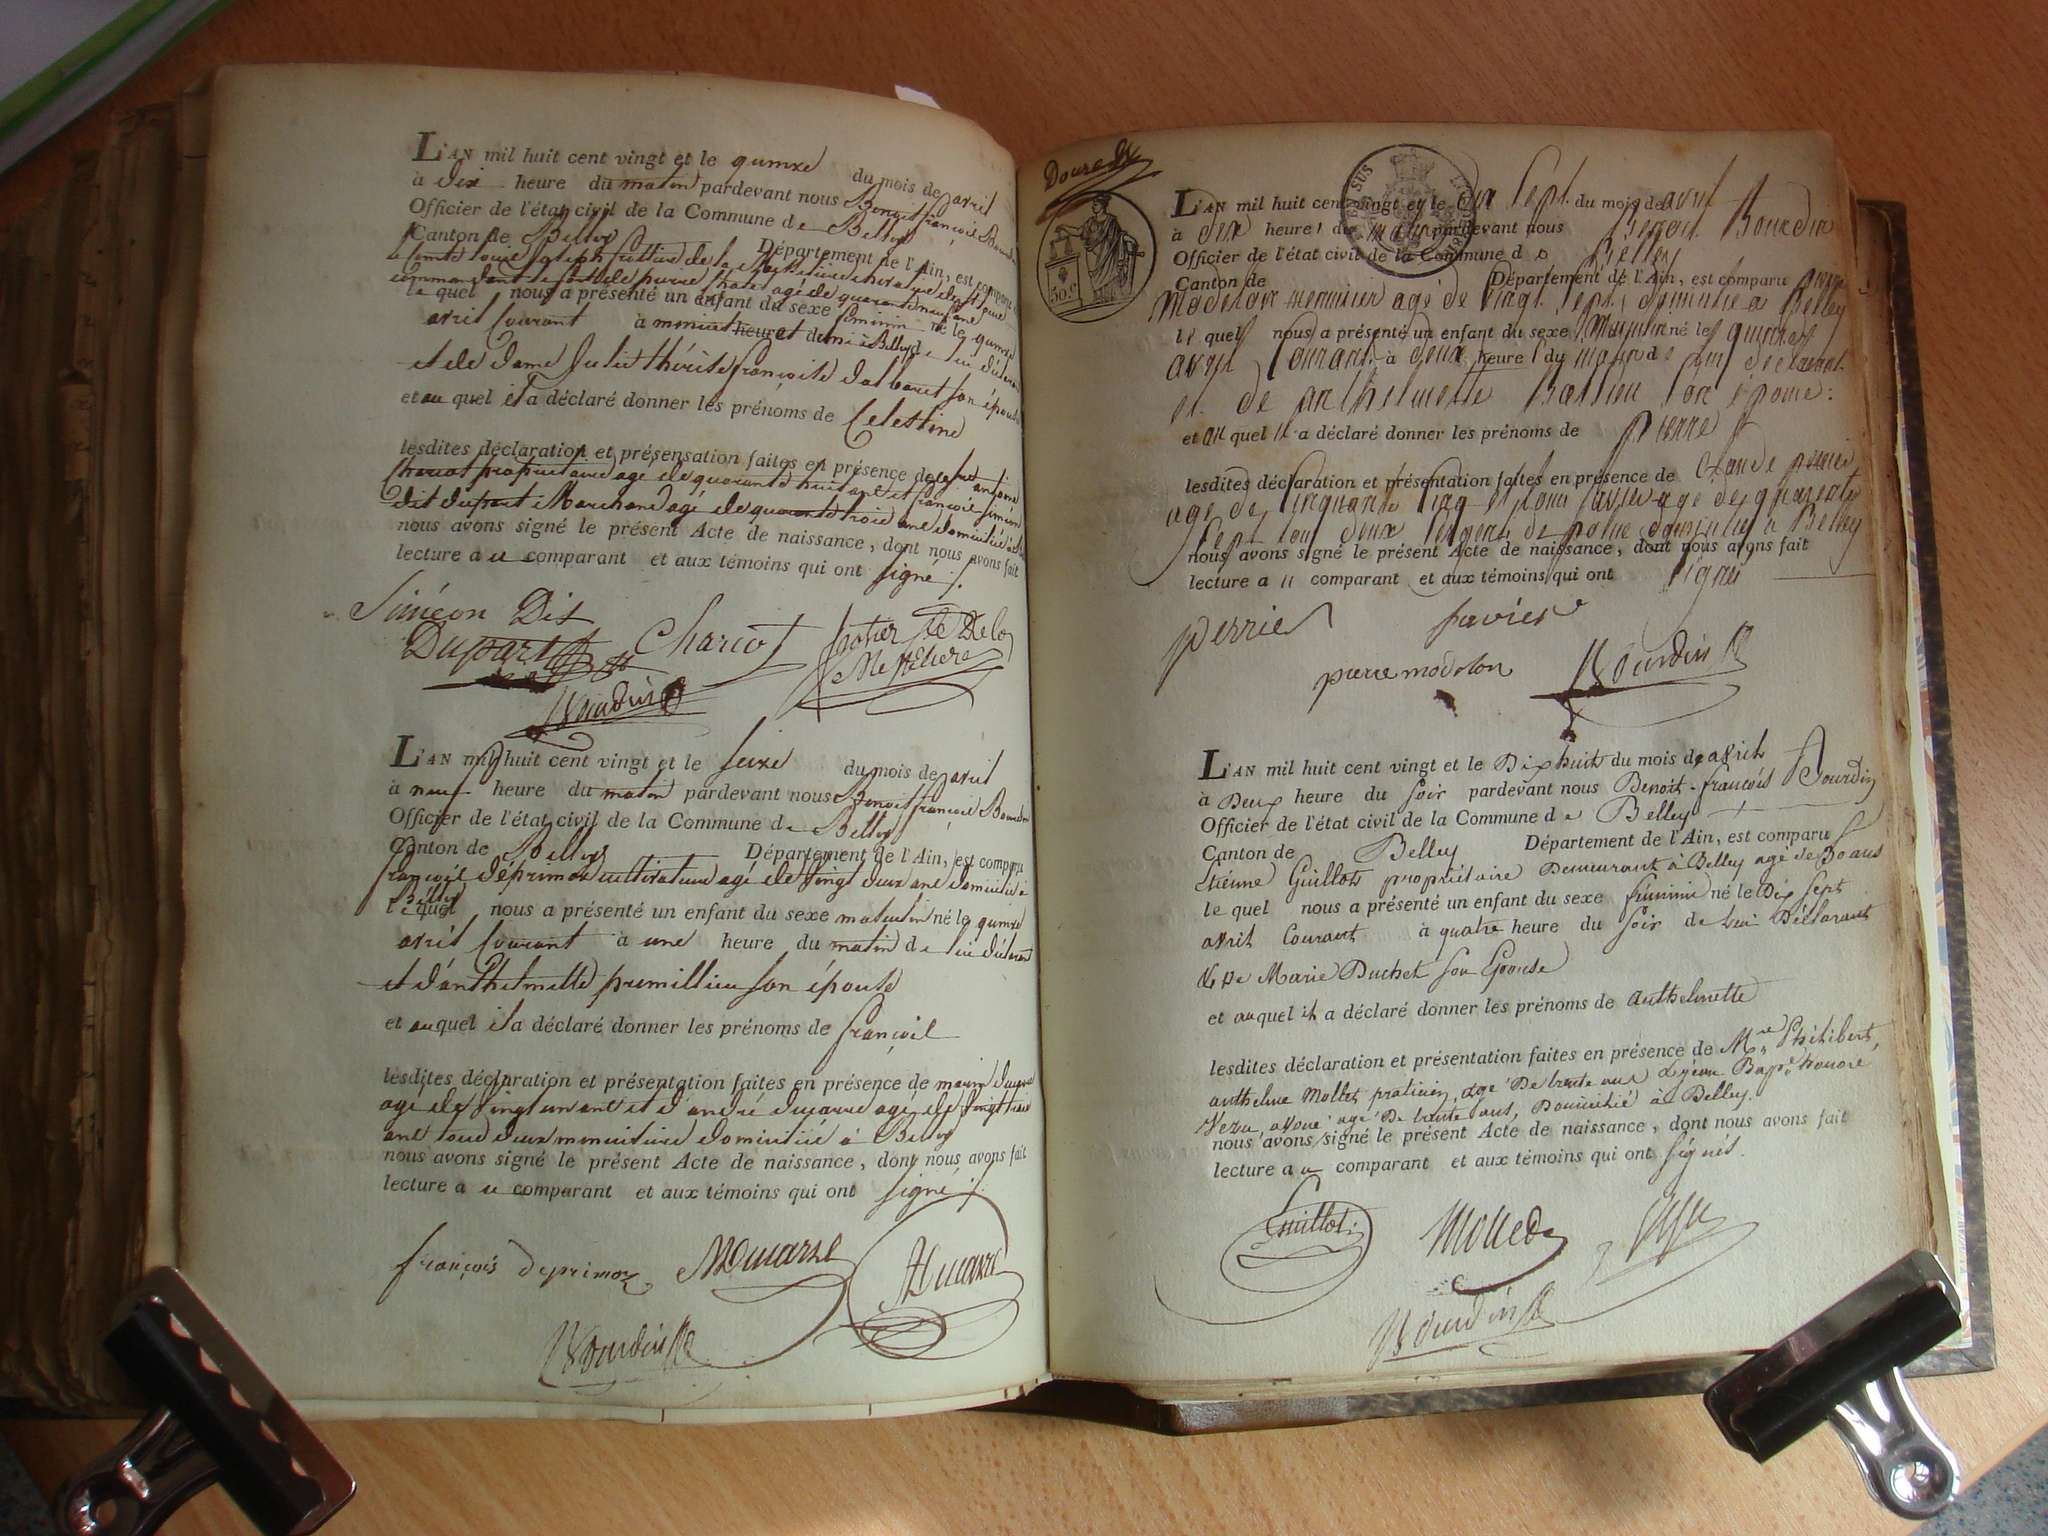 L'AN mil huit cent vingt et le quinze du mois de avril
à dix heure du matin pardevant nous Benoit françois Bourdin
Officier de l'état civil de la Commune de Belley
Canton de Belley Département de l'Ain, est comparu
le Comte louis joseph
commandant le fort de pierre Chatel agé de quarante neuf ans
le quel nous a présenté un enfant du sexe féminin né le quinze
avril Courant à minuit heure et demi à Belley de lui déclarant
et de dame Julie thérèse françoise dalbaret son épouse
et au quel il a déclaré donner les prénoms de Celestine
lesdites déclaration et présensation faites en présence de
Charcot propriétaire agé de quarante huit ans et françois Siméon
dit dupart Marchand agé de quarante trois ans domiciliés à
nous avons signé le présent Acte de naissance, dont nous avons fait
lecture a u comparant et aux témoins qui ont signé ./.
Siméon Dit
Dupart Charcot De la
Mettiere
Bourdin
L'AN mil huit cent vingt et le seize du mois de avril
à neuf heure du matin pardevant nous Benoit françois Bourdin
Officier de l'état civil de la Commune de Belley
Canton de Belley Département de l'Ain, est comparu
françois déprimoz cultivateur agé de vingt deux ans domicilié à
Belley
le quel nous a présenté un enfant du sexe masculin né le quinze
avril Courant à une heure du matin de lui déclarant
et d'anthelmette premillieu son épouse
et au quel il a déclaré donner les prénoms de françois
lesdites déclaration et présentation faites en présence de
agé de vingt un ans et d'andré ducarre agé de vingt trois
ans tous deux menuisiers domiciliés à Belley
nous avons signé le présent Acte de naissance, dont nous avons fait
lecture a u comparant et aux témoins qui ont signé ./.
françois deprimoz
Bourdin
50 c.
L'AN mil huit cent vingt et le dix sept du mois de avril
à dix heure du matin pardevant nous Benoit Bourdin
Officier de l'état civil de la Commune de Belley
Canton de Département de l'Ain, est comparu pierre
modelon menuisier agé de vingt sept domicilié à Belley
le quel nous a présenté un enfant du sexe Masculin né le quinze
avril Courant à deux heure du matin de lui déclarant
et de anthelmette son épouse:
et au quel il a déclaré donner les prénoms de Pierre
lesdites déclaration et présentation faites en présence de Claude perrier
agé de Cinquante Cinq et louis favier agé de quarante
Sept tous deux sergent de police domiciliés à Belley
nous avons signé le présent Acte de naissance, dont nous avons fait
lecture a u comparant et aux témoins qui ont signé
perrier favier
pierre modelon Bourdin
L'AN mil huit cent vingt et le Dix huit du mois de avril
à Deux heure du soir pardevant nous Benoit-françois Bourdin
Officier de l'état civil de la Commune de Belley
Canton de Belley Département de l'Ain, est comparu
Etienne Guillot propriétaire Demeurant à Belley agé de 30 ans
le quel nous a présenté un enfant du sexe féminin né le Dix sept
avril Courant à quatre heure du soir de lui Déclarant
& de Marie Duchet son Epouse
et au quel il a déclaré donner les prénoms de anthelmette
lesdites déclaration et présentation faites en présence de Mre Philibert
anthelme Mollet praticien, agé De trente ans & jean Bapte honoré
avoué agé De trente ans, Domicilié à Belley.
nous avons signé le présent Acte de naissance, dont nous avons fait
lecture a u comparant et aux témoins qui ont signés.
Guillot Mollet
Bourdin